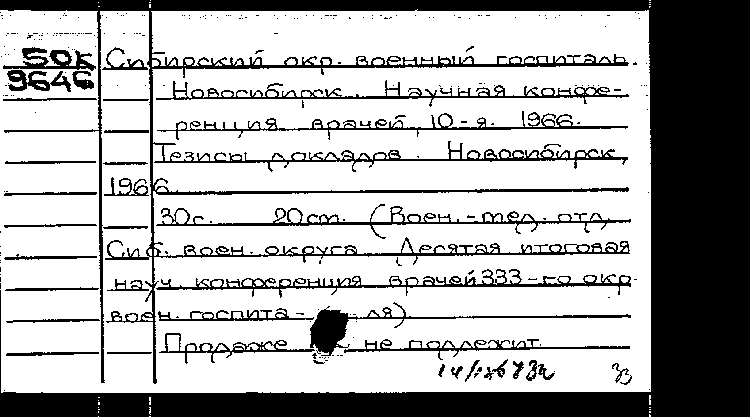 50к Сибирский окр. военный госпиталь.
9646 Новосибирск. Научная конфе-
ренция врачей, 10-я. 1966.
Тезисы докладов. Новосибирск,
1966.
30с. 20см. (Воен.-мед. отд.
Сиб. воен. округа. Десятая итоговая
науч. конференция врачей 333-го окр.
воен. госпита- ля)
Продаже не подлежит